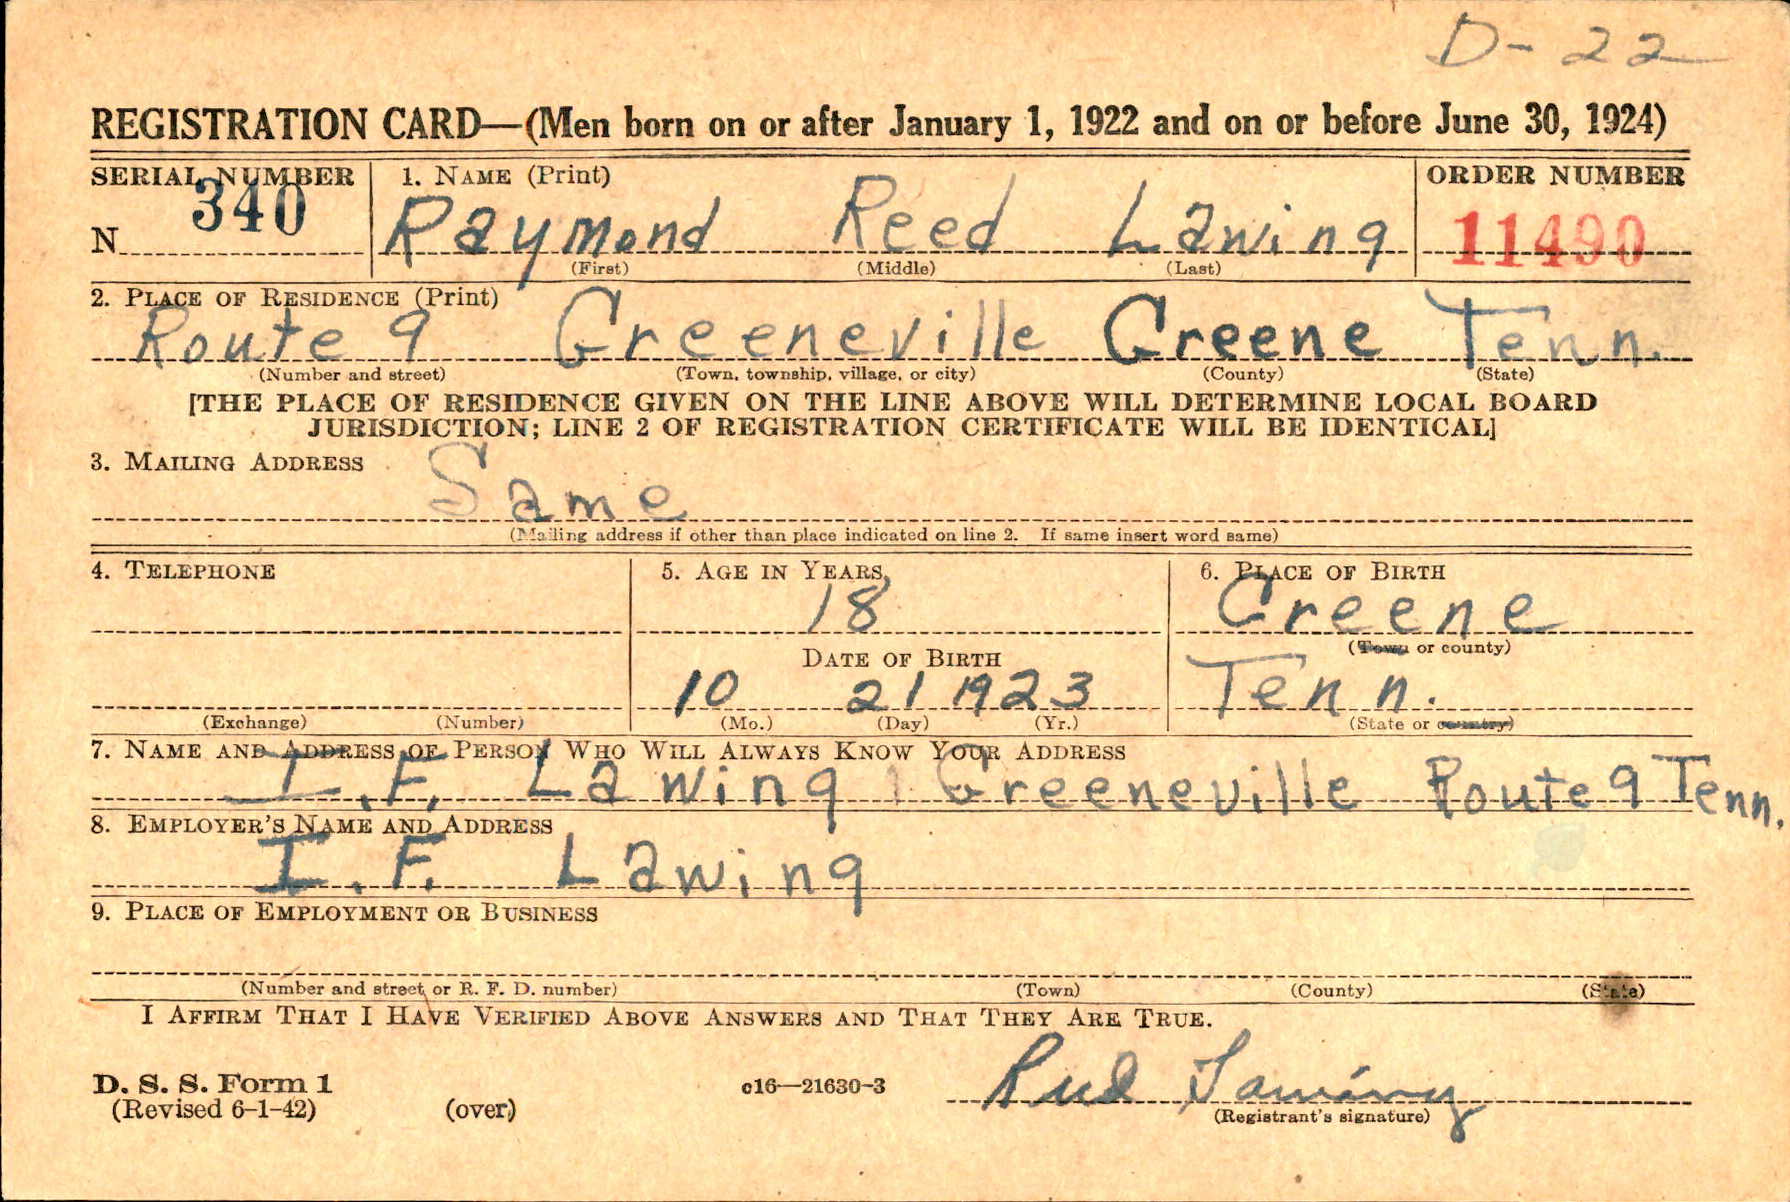 D-22
REGISTRATION CARD—(Men born on or after January 1, 1922 and on or before June 30, 1924)
SERIAL NUMBER 1. NAME (Print) ORDER NUMBER
N 340 Raymond Reed Lawing 11490
(First) (Middle) (Last)
2. PLACE OF RESIDENCE (Print)
Route 9 Greeneville Greene Tenn.
(Number and street) (Town, township, village, or city) (County) (State)
[THE PLACE OF RESIDENCE GIVEN ON THE LINE ABOVE WILL DETERMINE LOCAL BOARD
JURISDICTION; LINE 2 OF REGISTRATION CERTIFICATE WILL BE IDENTICAL]
3. MAILING ADDRESS
Same
(Mailing address if other than place indicated on line 2. If same insert word same)
4. TELEPHONE 5. AGE IN YEARS 6. PLACE OF BIRTH
18 Greene
(Town or county)
DATE OF BIRTH
10 21 1923 Tenn.
(Exchange) (Number) (Mo.) (Day) (Yr.) (State or country)
7. NAME AND ADDRESS OF PERSON WHO WILL ALWAYS KNOW YOUR ADDRESS
I.F. Lawing, Greeneville Route 9 Tenn.
8. EMPLOYER'S NAME AND ADDRESS
I.F. Lawing
9. PLACE OF EMPLOYMENT OR BUSINESS
(Number and street or R. F. D. number) (Town) (County) (State)
I AFFIRM THAT I HAVE VERIFIED ABOVE ANSWERS AND THAT THEY ARE TRUE.
D. S. S. Form 1
(Revised 6-1-42) (over) c16—21630-3 Lawing
(Registrant's signature)